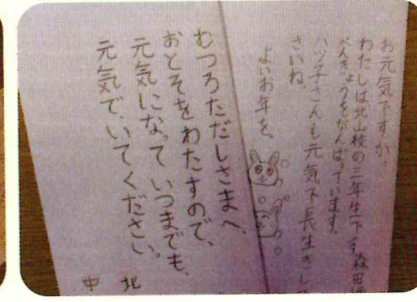 お元気ですか。
わたしは北山校の三年生です。森田
べんきょうをがんばっています。
ハツ子さんも元気で長生きし
さいね。
よいお年を。
むつろただしさまへ、
おとそをわたすので、
元気になって いつまでも、
元気で、いてください。
北
中